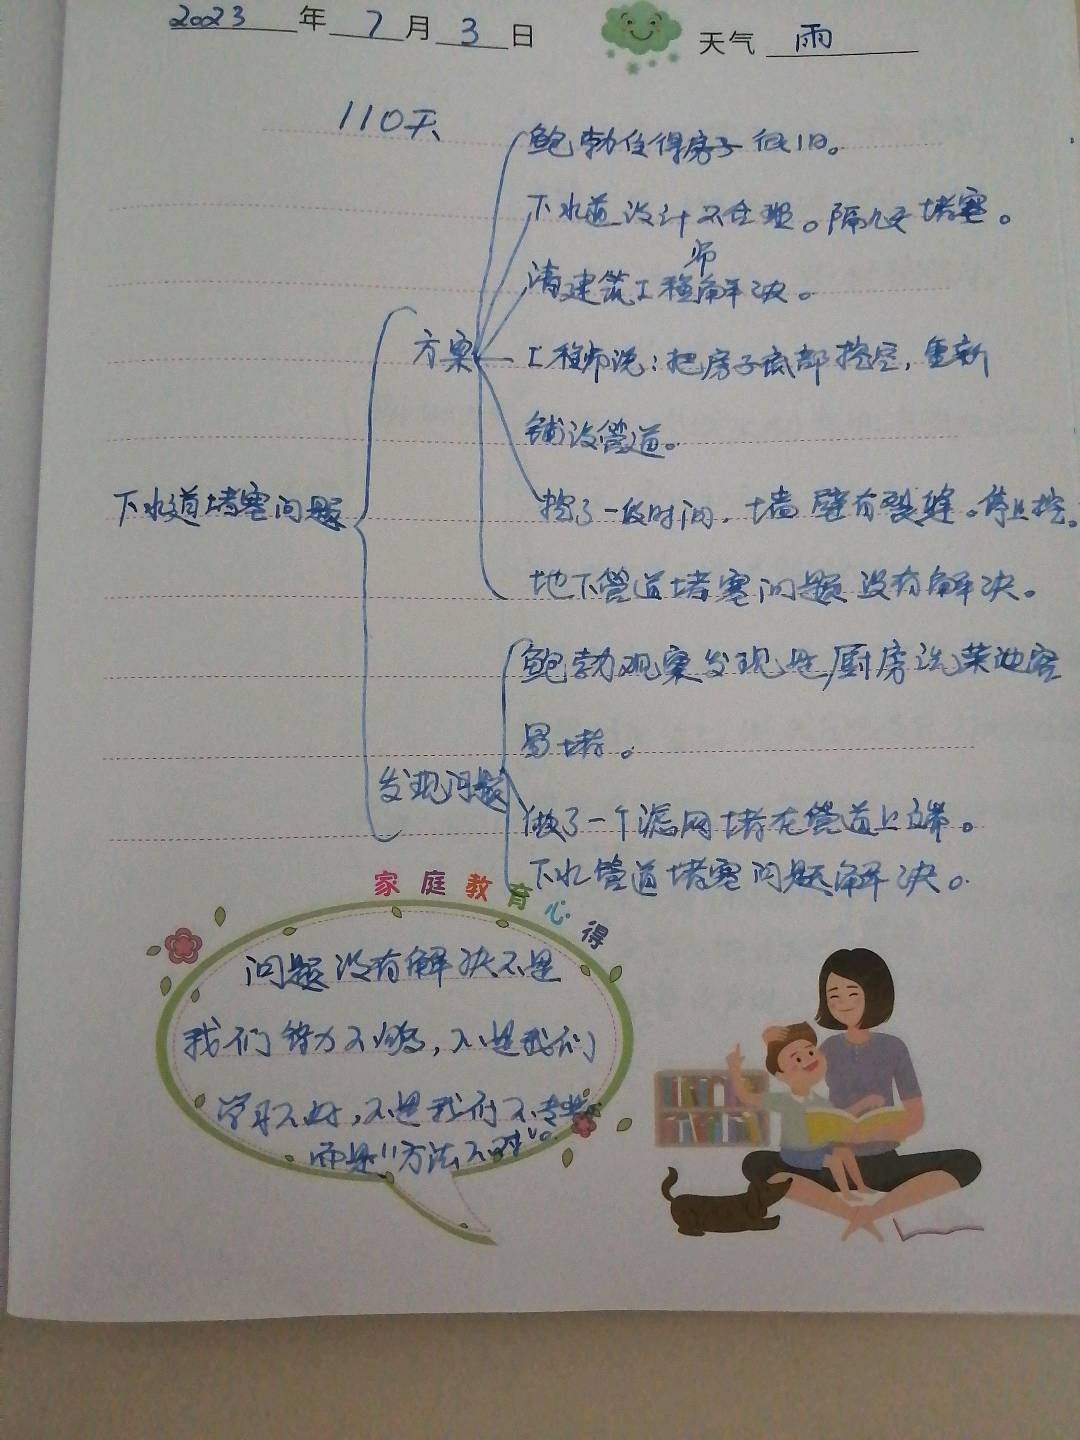 2023年7月3日 天气 雨
110天
鲍勃住得房子很旧。
下水道设计不合理。隔几天堵塞。
请建筑工程师解决。
方案
工程师说：把房子底部挖空，重新
铺设管道。
下水道堵塞问题
挖了一段时间，墙壁有裂缝。停止挖。
地下管道堵塞问题没有解决。
鲍勃观察发现是厨房洗菜池容
易堵。
发现问题
做了一个滤网堵在管道上端。
下水管道堵塞问题解决。
家庭教育心得
问题没有解决不是
我们努力不够，不是我们
学习不好，不是我们不专业
而是“方法不对”。